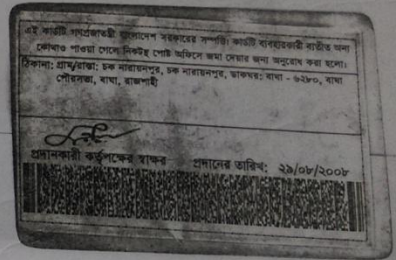 এই কার্ডটি গণপ্রজাতন্ত্রী বাংলাদেশ সরকারের সম্পত্তি। কার্ডটি ব্যবহারকারী ব্যতীত অন্য
কোথাও পাওয়া গেলে নিকটস্থ পোষ্ট অফিসে জমা দেয়ার জন্য অনুরোধ করা হলো।
ঠিকানা: গ্রাম/রাস্তা: চক নারায়নপুর, চক নারায়নপুর, ডাকঘর: বাঘা - ৬২৮০, বাঘা
পৌরসভা, বাঘা, রাজশাহী
প্রদানকারী কর্তৃপক্ষের স্বাক্ষর প্রদানের তারিখ: ২৯/০৮/২০০৮